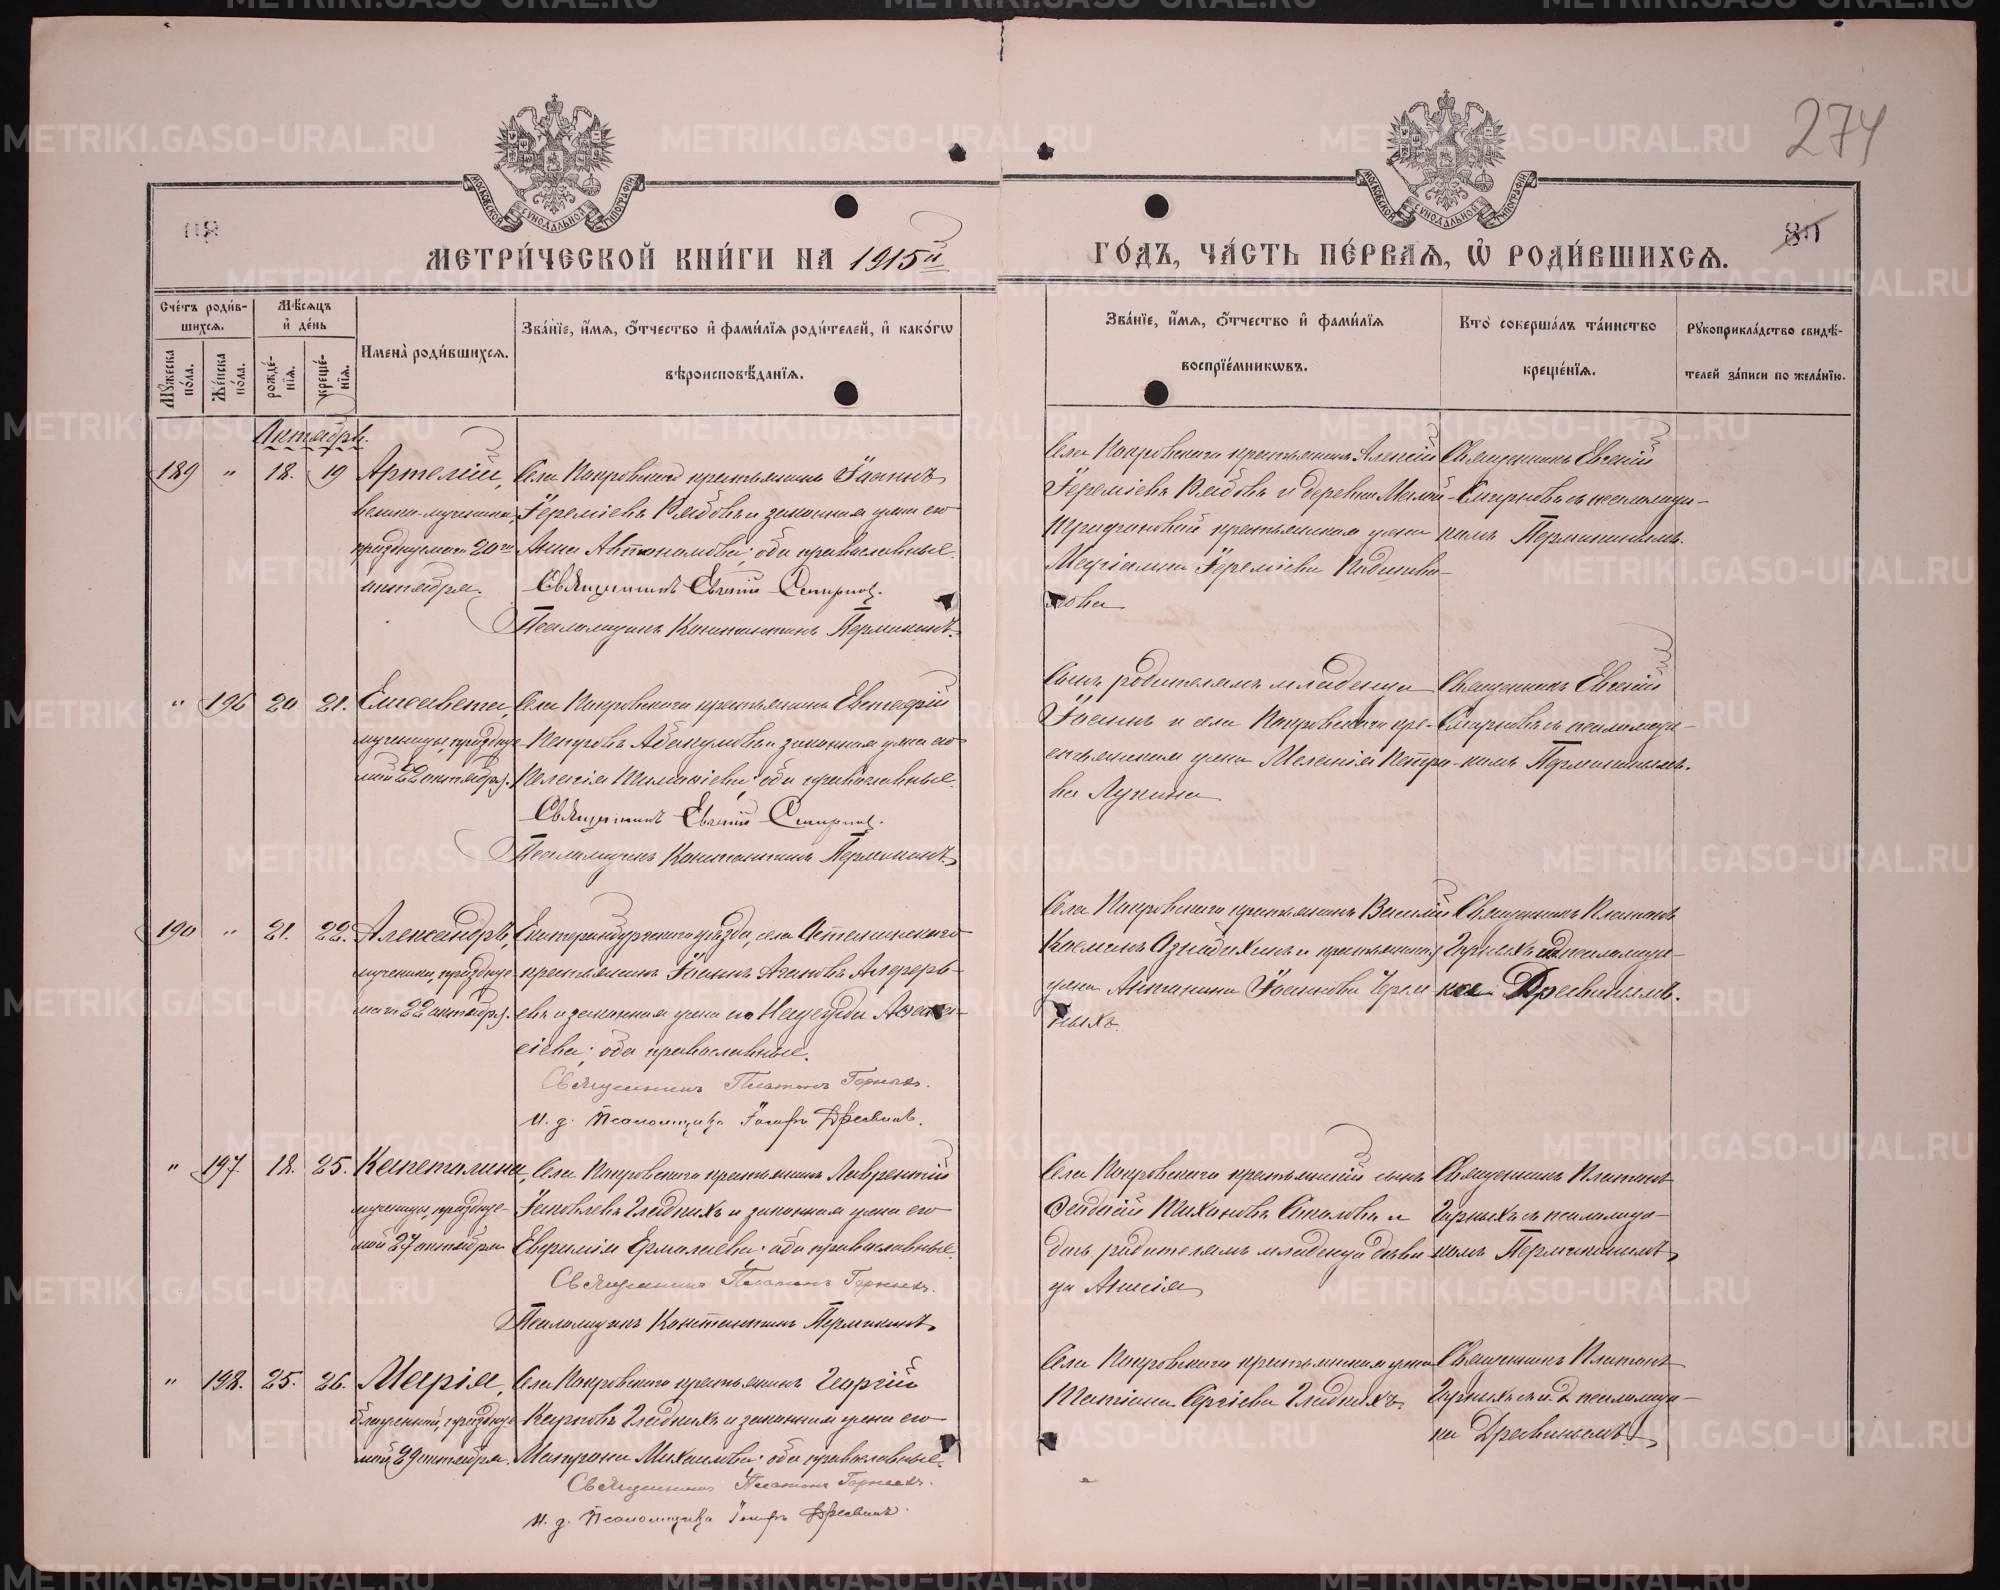 274
МЕТРИ́ЧЕСКОЙ КНИ́ГИ НА 1915й
ГО́ДЪ, ЧА́СТЬ ПЕ́РВАѦ, Ѡ҆ РОДИ́ВШИХСѦ.
80
МОСКОВСКОЙ СУНОДАЛЬНОЙ ТИПОГРАФІИ
МОСКОВСКОЙ СУНОДАЛЬНОЙ ТИПОГРАФІИ
Сче́тъ роди́в-
шихсѧ.
Мѣ́сѧцъ
и҆ де́нь
Мꙋ́жеска по́ла.
Же́нска по́ла.
рожде́-нїѧ.
креще́-нїѧ.
Имена̀ роди́вшихсѧ.
Зва́нїе, и҆́мѧ, ѻ҆́тчество и҆ фами́лїѧ роди́телей, и҆ како́гѡ
вѣроисповѣ́данїѧ.
Зва́нїе, и҆́мѧ, ѻ҆́тчество и҆ фами́лїѧ
воспрїе́мникѡвъ.
Кто̀ соверша́лъ та́инство
креще́нїѧ.
Рꙋкоприкла́дство свидѣ́-
телей за́писи по жела́нїю.
Октябрь.
189 " 18. 19 Артемій,
велико-мученика,
празднуемаго 20го
октября.
Села Покровскаго крестьянинъ Іоаннъ
Іереміевъ Рябовъ и законная жена его
Анна Автономова; оба православные.
Священникъ Евгеній Смирнов.
Псаломщикъ Константинъ Пермикинъ.
Села Покровскаго крестьянинъ Алексій
Іереміевъ Рябовъ и деревни Малой-
Трифоновой крестьянская жена
Іереміева
Священникъ Евгеній
Смирновъ съ псаломщи-
комъ Пермикинымъ.
" 196 20 21. Елисавета,
мученицы, праздnуе-
мой 22 октября.
Села Покровскаго крестьянинъ Евстафій
Абакумовъ и законная жена его
Пелагія; оба православные.
Священникъ Евгеній Смирнов.
Псаломщикъ Константинъ Пермикинъ.
Сынъ родителямъ младенца
Іоаннъ и села Покровскаго кре-
стьянская жена Меланія Петро-
ва Лукина
Священникъ Евгеній
Смирновъ съ псаломщи-
комъ Пермикинымъ.
190 " 21. 22. Александръ,
мученика, праздnуе-
маго 22 октября.
Екатеринбургскаго уѣзда, села
крестьянинъ Іоаннъ Алферь-
евъ и законная жена его Надежда
оба православные.
Священникъ Платонъ Горныхъ.
И. д. Псаломщика Іосифъ Древинъ.
Села Покровскаго крестьянинъ Василій
Косминъ и крестьянская
жена Антонина Іоаннова Чрем-
ныхъ.
Священникъ Платонъ
Горныхъ псаломщи-
ка Древинымъ.
" 197. 18. 25. Капетолина,
мученицы, праздnуе-
мой 27 октября
Села Покровскаго крестьянинъ Лаврентій
Іаковлевъ Гладкихъ и законная жена его
Евфимія Ермолаева; оба православные.
Священникъ Платонъ Горныхъ.
Псаломщикъ Константинъ Пермикинъ.
Села Покровскаго крестьянскій сынъ
Тихоновъ Соколовъ и
дочь родителямъ младенца дѣви-
ца Анисія
Священникъ Платонъ
Горныхъ съ псаломщи-
комъ Пермикинымъ
" 198. 25. 26. Марія,
блаженной, праздnуе-
мой 29 октября.
Села Покровскаго крестьянинъ Георгій
Карповъ Гладкихъ и законная жена его
Матрона Михаилова; оба православные.
Священникъ Платонъ Горныхъ.
И. д. Псаломщика Іосифъ Древинъ.
Села Покровскаго крестьянская жена
Татіана Сергіева Гладкихъ
Священникъ Платонъ
Горныхъ съ и. д. псаломщи-
ка Древинымъ.
METRIKI.GASO-URAL.RU